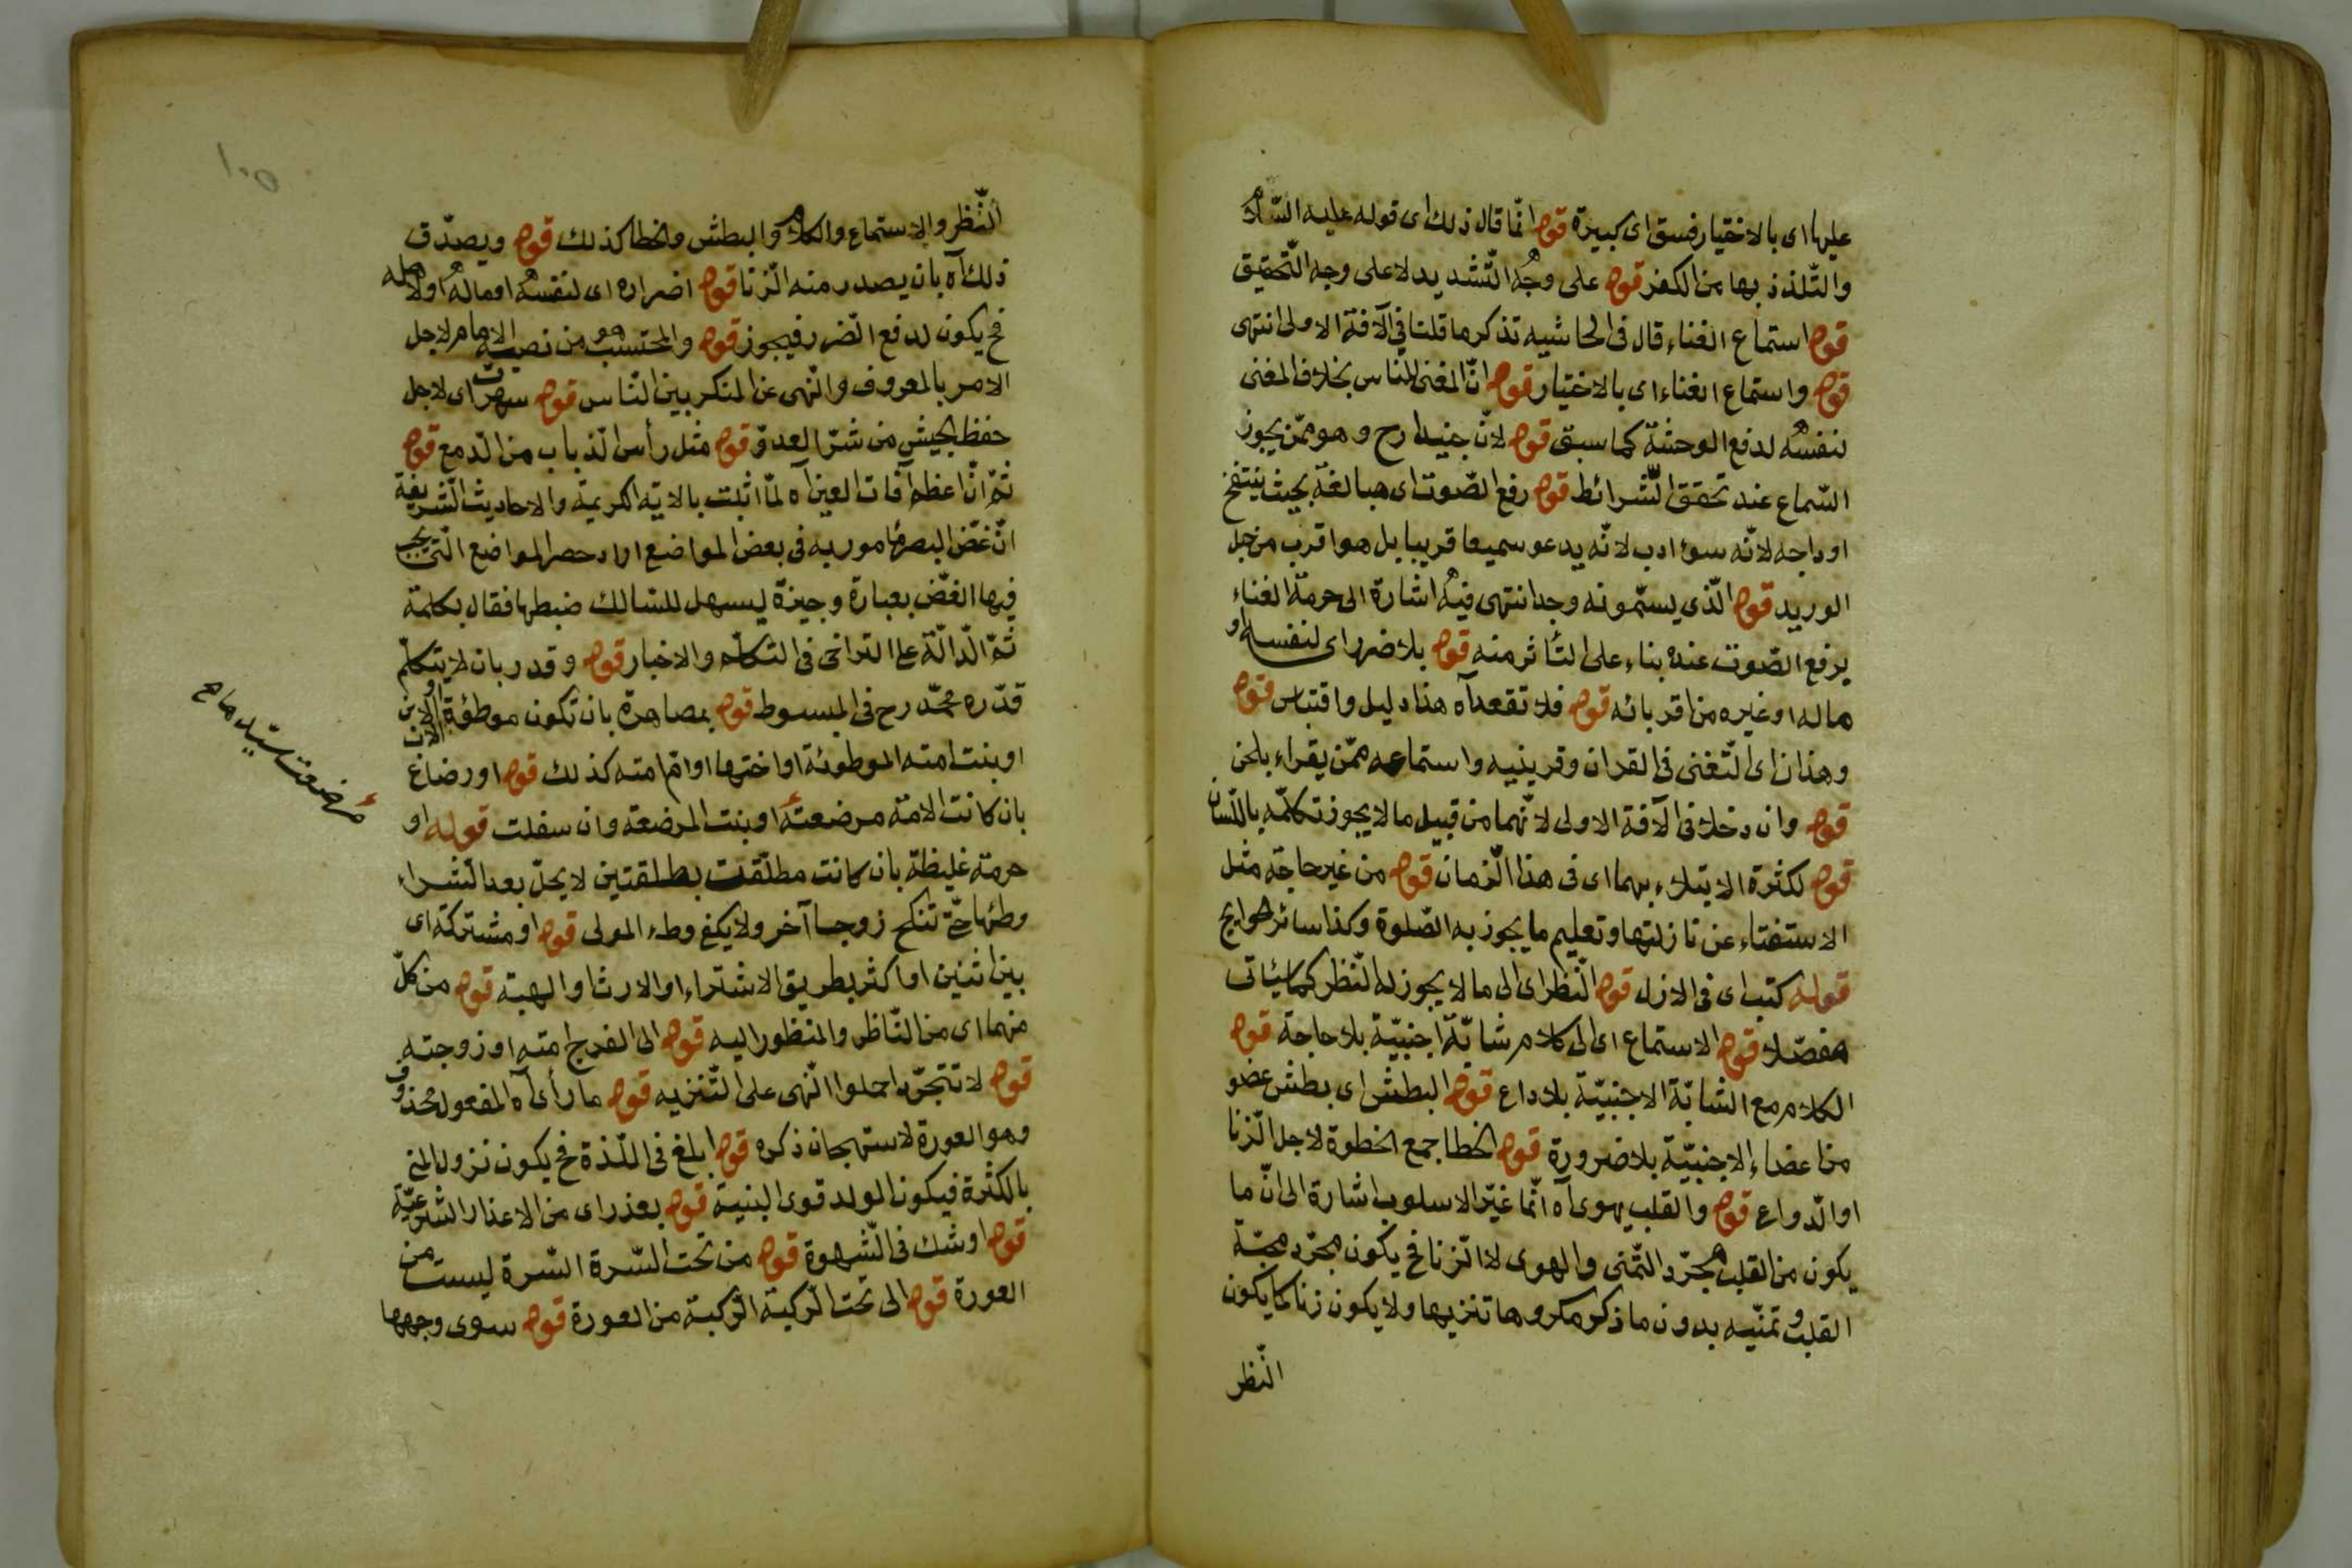 عليها اى بالاختيار فسق اى كبيرة قوله انّما قال ذلك اى قوله عليه السّلام
والتّلذذ بها من الكفر قوله على وجه التّشديد لا على وجه التّحقيق
قوله استماع الغناء قال فى الحاشيه تذكر ما قلنا فى الآفة الاولى انتهى
قوله واستماع الغناء اى بالاختيار قوله انّ المغنى للناس بخلاف المغنى
لنفسه لدفع الوحشة كما سبق قوله لانّ جنيدا رح وهو ممّن يجوز
السّماع عند تحقق الشّرائط قوله رفع الصّوت اى مبالغة بحيث ينتفخ
اوداجه لانّه سوء ادب لانّه يدعو سميعا قريبا بل هو اقرب من حبل
الوريد قوله الّذى يسمّونه وجدا انتهى فيه اشارة الى حرمة الغناء
يرفع الصّوت عنده بناء على التأثر منه قوله بلا ضرر اى لنفسه او
ماله او غيره من اقربائه قوله فلا تقعد آه هذا دليل واقتباس قوله
وهذان اى التّغنى فى القران وقرينيه واستماعه ممّن يقراء بلحن
قوله وان دخلا فى الآفة الاولى لانّهما من قبيل ما لا يجوز تكلّمه باللّسان
قوله لكثرة الابتلاء بهما اى فى هذا الزّمان قوله من غير حاجة مثل
الاستفتاء عن نازلتها وتعليم ما يجوز به الصّلوة وكذا سائر حوايج
قوله كتب اى فى الازل قوله النّظر اى الى ما لا يجوز له النّظر كما سيئاتى
مفصّلا قوله الاستماع اى الى كلام شابّة اجنبيّة بلا حاجة قوله
الكلام مع الشابّة الاجنبيّة بلا داع قوله البطش اى بطش عضو
من اعضاء الاجنبيّة بلا ضرورة قوله الخطا جمع الخطوة لاجل الزّنا
او الدّواع قوله والقلب يهوى آه انّما غيّر الاسلوب اشارة الى انّ ما
يكون من القلب مجرّد التّمنى والهوى لا الزّنا فح يكون مجرّد محبّة
القلب وتمنّيه بدون ما ذكر مكروها تنزيها ولا يكون زنا كما يكون
النّظر
١٠٥
النّظر والاستماع والكلام والبطش والخطا كذلك قوله ويصدّق
ذلك آه بان يصدر منه الزّنا قوله اضراره اى لنفسه او ماله او لاهله
فح يكون لدفع الضّرر فيجوز قوله والمحتسب هو من نصبه الامام لاجل
الامر بالمعروف والنّهى عن المنكر بين النّاس قوله سهرت اى لاجل
حفظ الجيش من شرّ العدوّ قوله مثل رأس الذّباب من الدّمع قوله
ثمّ انّ اعظم آفات العين آه لمّا اثبت بالاية الكريمة والاحاديث الشّريفة
انّ غضّ البصر مأمور به فى بعض المواضع اراد حصر المواضع الّتى يجب
فيها الغضّ بعبارة وجيزة ليسهل للسّالك ضبطها فقال بكلمة
ثمّ الدّالّة على التراخى فى التكلّم والاخبار قوله وقدر بان لا يتكلّم
قدّره محمّد رح فى المبسوط قوله بمصاهرة بان تكون موطؤة الاب او الابن
او بنت امته الموطوئة او اختها او امّ امته كذلك قوله او رضاع
بان كانت الامة مرضعته او بنت المرضعة وان سفلت قوله او
حرمة غليظة بان كانت مطلّقت بطلقتين لا يحلّ بعد الشّراء
وطئها حتّى تنكح زوجا آخر ولا يكفى وطء المولى قوله او مشتركة اى
بين اثنين او اكثر بطريق الاشتراء او الارث او الهبة قوله من كلّ
منهما اى من النّاظر والمنظور اليه قوله الى الفرج امته او زوجته
قوله لا تتجرّد احملوا النّهى على التّنزيه قوله ما رأى آه المفعول محذوف
وهو العورة لاستهجان ذكره قوله ابلغ فى اللّذة فح يكون نزول المنى
بالكثرة فيكون الولد قوى البنية قوله بعذر اى من الاعذار الشّرعيّة
قوله او شك فى الشّهوة قوله من تحت السّرة السّرة ليست من
العورة قوله الى تحت الرّكبة الرّكبة من العورة قوله سوى وجهها
مرضعت سيّد